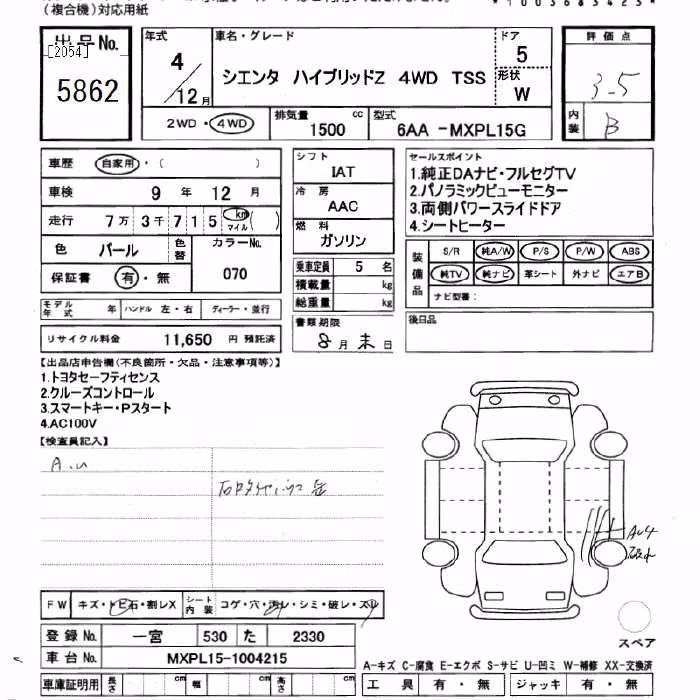 (複合機)対応用紙
*1003683423*
出品No.
[2054]
5862
年式
4/12月
車名・グレード
シエンタ ハイブリッドZ 4WD TSS
ドア
5
形状
W
評価点
3.5
内装
B
2WD・4WD
排気量
1500 cc
型式
6AA -MXPL15G
車歴 自家用・( )
車検 9年 12月
走行 7万 3千 7 1 5 km マイル( )
色 パール
色替
カラーNo.
070
保証書 有・無
シフト
IAT
冷房
AAC
燃料
ガソリン
乗車定員 5 名
積載量 kg
総重量 kg
セールスポイント
1.純正DAナビ・フルセグTV
2.パノラミックビューモニター
3.両側パワースライドドア
4.シートヒーター
装備品
S/R 純A/W P/S P/W ABS
純TV 純ナビ 革シート 外ナビ エアB
ナビ型番:
モデル年式 年 ハンドル 左・右 ディーラー・並行
リサイクル料金 11,650 円 預託済
書類期限
8月末日
後日品
【出品店申告欄(不良箇所・欠品・注意事項等)】
1.トヨタセーフティセンス
2.クルーズコントロール
3.スマートキー・Pスタート
4.AC100V
【検査員記入】
A.u
FW キズ・トビ石・割レX シート内装 コゲ・穴・汚レ・シミ・破レ・スレ
登録No. 一宮 530 た 2330
車台No. MXPL15-1004215
車庫証明用 長さ cm 幅 cm 高さ cm
スペア
A-キズ C-腐食 E-エクボ S-サビ U-凹ミ W-補修 XX-交換済
工具 有・無 ジャッキ 有・無